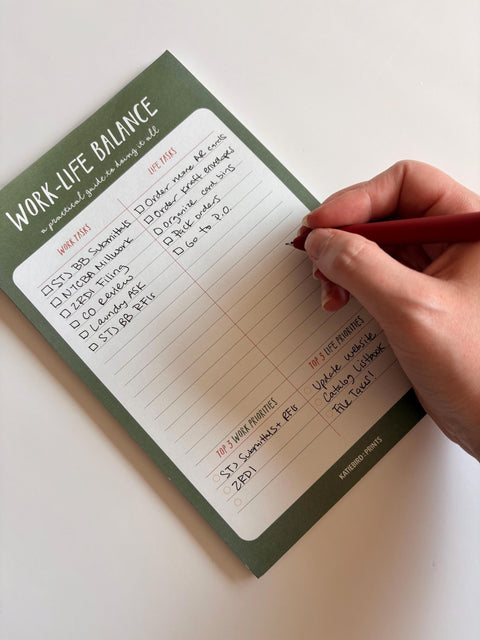 WORK-LIFE BALANCE
a practical guide to doing it all
WORK TASKS
STJ BB Submittals
NYCBA Millwork
ZRDI Filing
CO review
Laundry ASK
STJ BB RFIs
LIFE TASKS
Order more AR cards
Order kraft envelopes
Organize card bins
Pack orders
Go to P.O.
TOP 3 WORK PRIORITIES
STJ Submittals + RFIs
ZRDI
TOP 3 LIFE PRIORITIES
Update website
Catalog Listbook
File Taxes!
KATIEBIRD::PRINTS